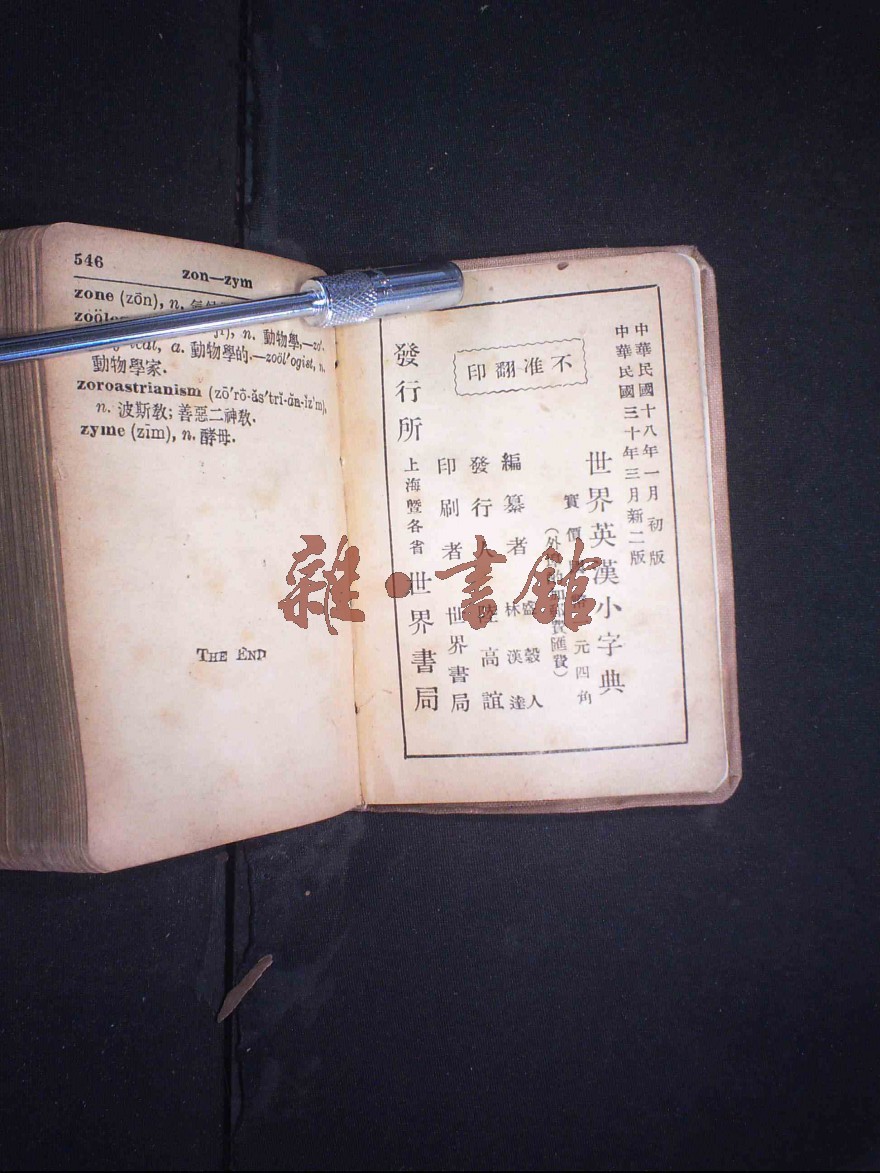 546
zon—zym
zone (zōn), n.
zoöl
n. 動物學,—zo
a. 動物學的.—zoöl′ogist, n.
動物學家.
zoroastrianism (zō′rō-ăs′trĭ-ăn-ĭz'm),
n. 波斯教; 善惡二神教.
zyme (zīm), n. 酵母.
THE END
中華民國十八年一月初版
中華民國三十年三月新二版
世界英漢小字典
實價 元四角
(外埠 費匯費)
不准翻印
編纂者 盛穀人
林漢達
發行人 陸高誼
印刷者 世界書局
發行所 上海暨各省 世界書局
雜·書館